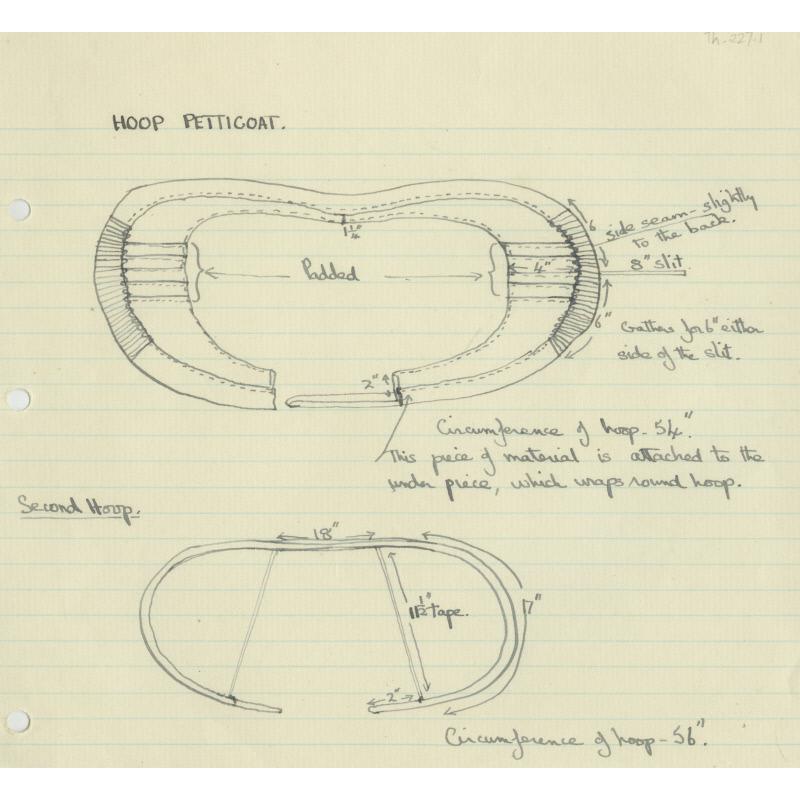 Th.227.1
HOOP PETTICOAT.
1¼"
6"
side seam - slightly
to the back.
Padded
4"
8" slit
6"
Gathers for 6" either
side of the slit.
2"
Circumference of hoop - 54".
This piece of material is attached to the
under piece, which wraps round hoop.
Second Hoop.
18"
17"
11½" tape.
2"
Circumference of hoop - 56".